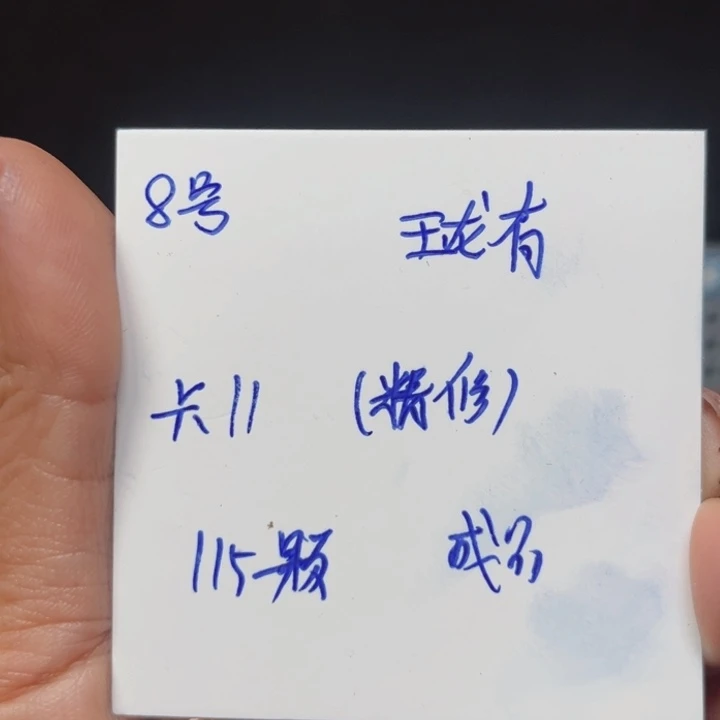 8号 王龙有
卡11 (精修)
115颗